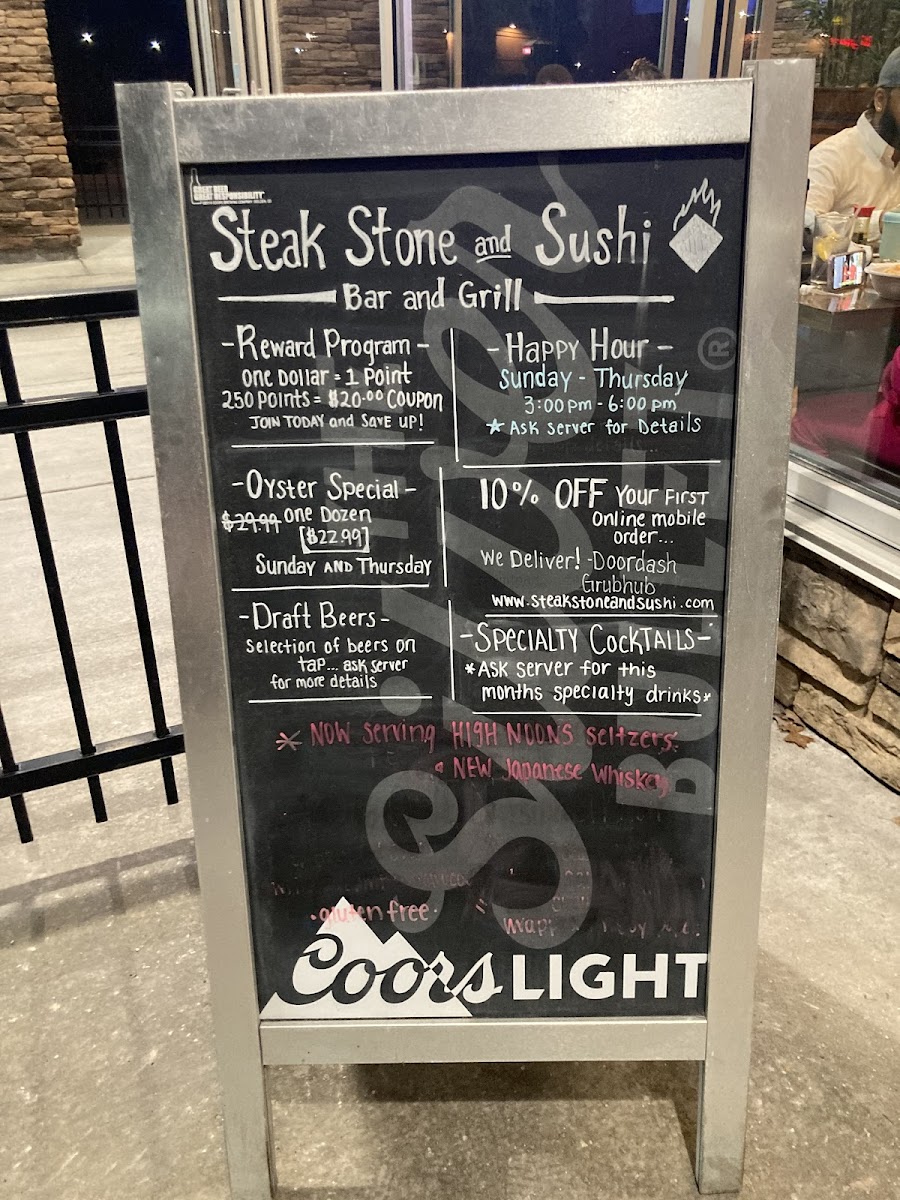 GREAT BEER
GREAT RESPONSIBILITY
Steak Stone and Sushi
Bar and Grill
-Reward Program-
one Dollar = 1 Point
250 Points = $20.00 Coupon
JOIN TODAY and SAVE UP!
-Happy Hour-
Sunday - Thursday
3:00 pm - 6:00 pm
* Ask server for Details
-Oyster Special-
$29.99 one Dozen
[$22.99]
Sunday AND Thursday
10% OFF Your First
Online mobile
order...
We Deliver! -Doordash
Grubhub
www.steakstoneandsushi.com
-Draft Beers-
Selection of beers on
tap... ask server
for more details
-Specialty Cocktails-
*Ask server for this
months specialty drinks*
* NOW serving HIGH NOONS seltzers.
NEW Japanese Whiskey
·gluten free·
Silver
BULLET®
Coors LIGHT